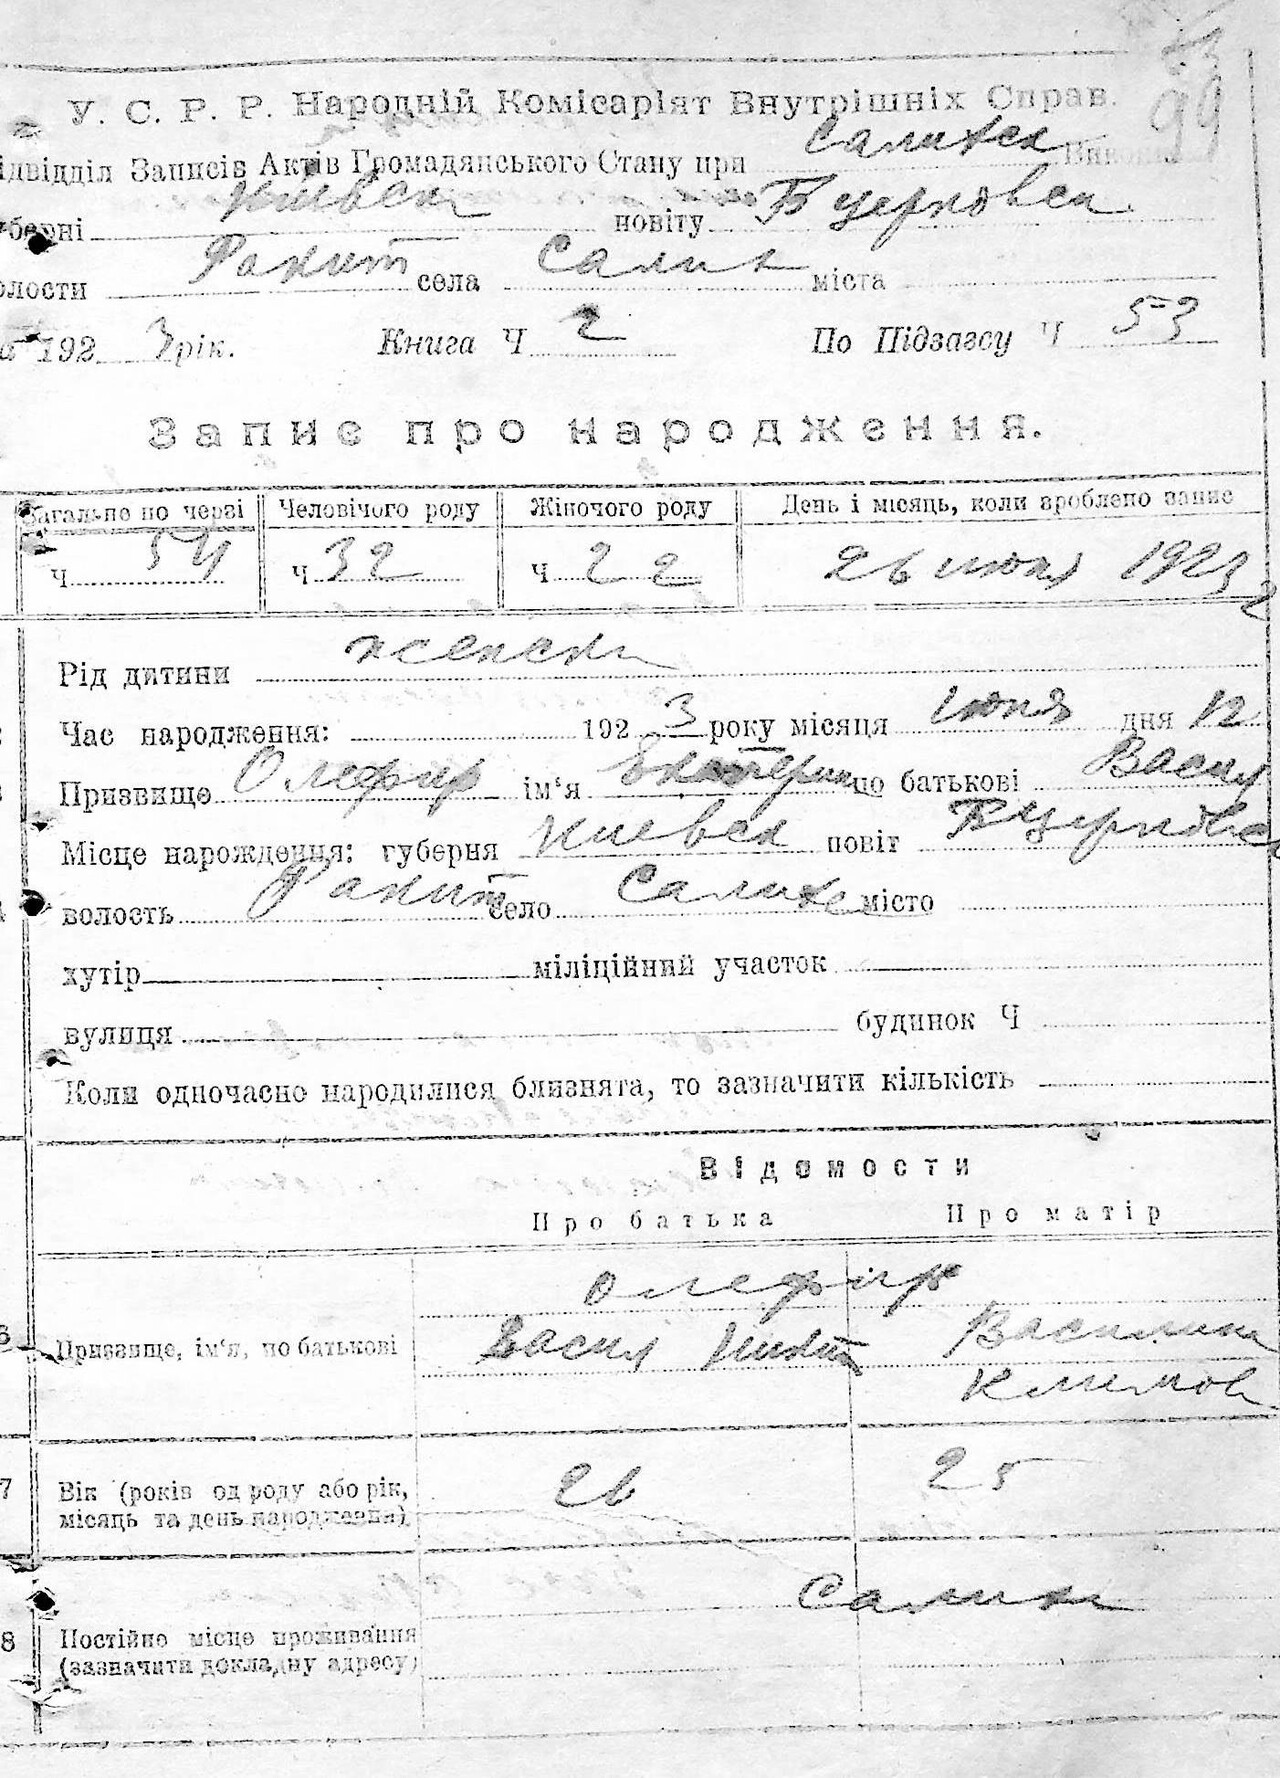 99
У. С. Р. Р. Народній Комісаріят Внутрішніх Справ.
ідвідділ Записів Актів Громадянського Стану при Салихск Викон
берні Киевск повіту Бцерковск
олости Ракит села Салих міста
192 3 рік. Книга Ч 2 По Підзагсу Ч 53
Запис про народження.
Загальне по черзі Человічого роду Жіночого роду День і місяць, коли зроблено запис
Ч 54 Ч 32 Ч 22 26 июня 1923
Рід дитини женски
Час народження: 192 3 року місяця июня дня 12
Призвище Олефир ім'я Екатерин по батькові Васил
Місце нарождення: губерня Киевск повіт Бцерковск
волость Ракит село Салихе місто
хутір міліційний участок
вулиця будинок Ч
Коли одночасно народилися близнята, то зазначити кількість
Відомости
Про батька Про матір
Олефир
6 Призвище, ім'я, по батькові Васил Никит Василина
Климов
7 Вік (років од роду або рік, місяць та день народження) 26 25
Салихе
8 Постійне місце проживання
(зазначити докладну адресу)